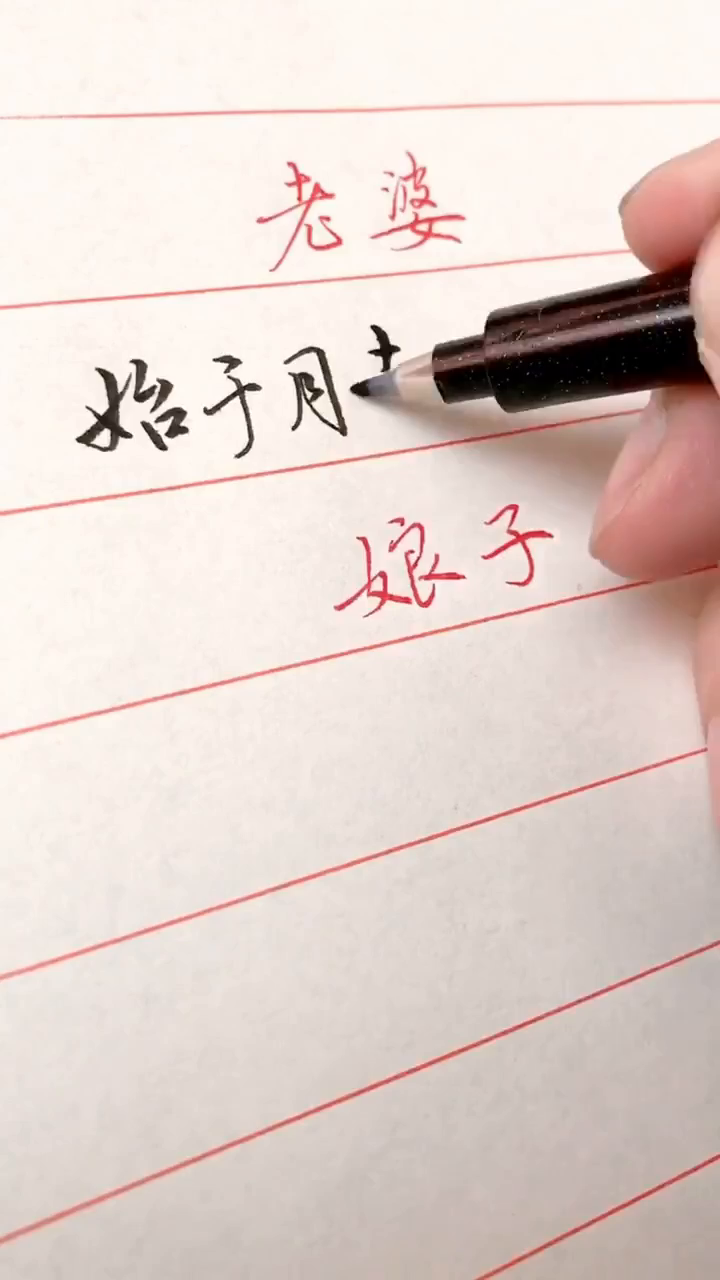 老婆
始于月
娘子